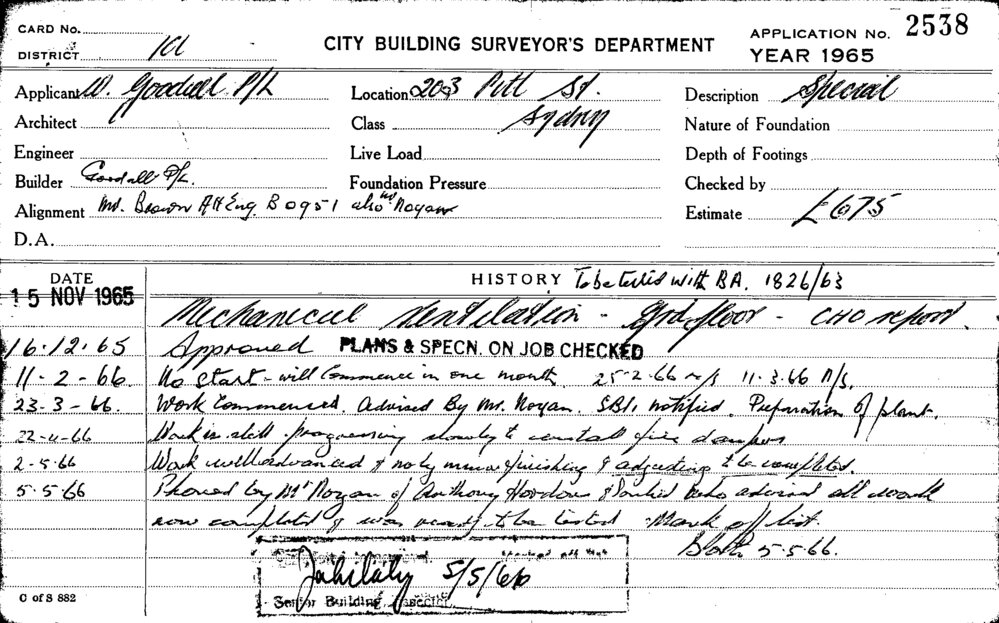 CARD No.
DISTRICT
CITY BUILDING SURVEYOR'S DEPARTMENT
APPLICATION No. 2538
YEAR 1965
Applicant W. Goodall P/L
Location 203 Pitt St.
Sydney
Description Special
Architect
Class
Nature of Foundation
Engineer
Live Load
Depth of Footings
Builder Goodall P/L.
Foundation Pressure
Checked by
Alignment Mr. Brown B0951 also Mr Noyan
Estimate £675
D.A.
DATE
HISTORY To be tested with BA. 1826/63
15 NOV 1965
Mechanical Ventilation - Grd. floor - CHO report.
16.12.65 Approved PLANS & SPECN. ON JOB CHECKED
11-2-66. No start - will commence in one month. 25-2-66 n/s 11-3-66 n/s.
23-3-66. Work commenced. Advised By Mr. Noyan. notified. Preparation of plant.
22-4-66 Work is still progressing slowly to install fire dampers
2-5-66 Work well advanced & only minor finishing & adjusting to be completed.
5.5.66 Phoned by Mr Noyan of Anthony who advised all work
now completed & was ready to be tested. Mark off list.
5-5-66.
5/5/66
Senior Building Inspector
C of S 882